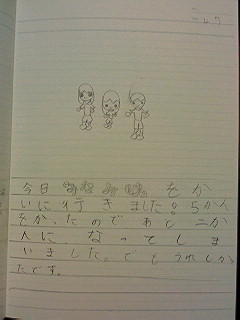 今日 をか
いに行きました。5か人
をかったのであと二か
人になってしま
いました。でもうれしか
たです。